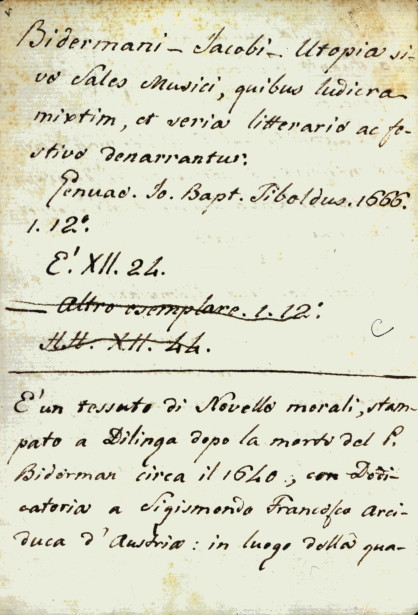 Bidermani - Jacobi - Utopia si-
ve Sales Musici, quibus ludicra
mixtim, et seria litterarie ac fe-
stive denarrantur.
Genuae. Io. Bapt. Tiboldus. 1666.
1. 12.º
E.' XII. 24.
Altro esemplare. 1. 12.º
HH. XII. 44.
E' un tessuto di Novelle morali, stam-
pato a Dilinga dopo la morte del P.
Biderman circa il 1640., con Dedi-
catoria a Sigismondo Francesco Arci-
duca d'Austria: in luogo della qua-